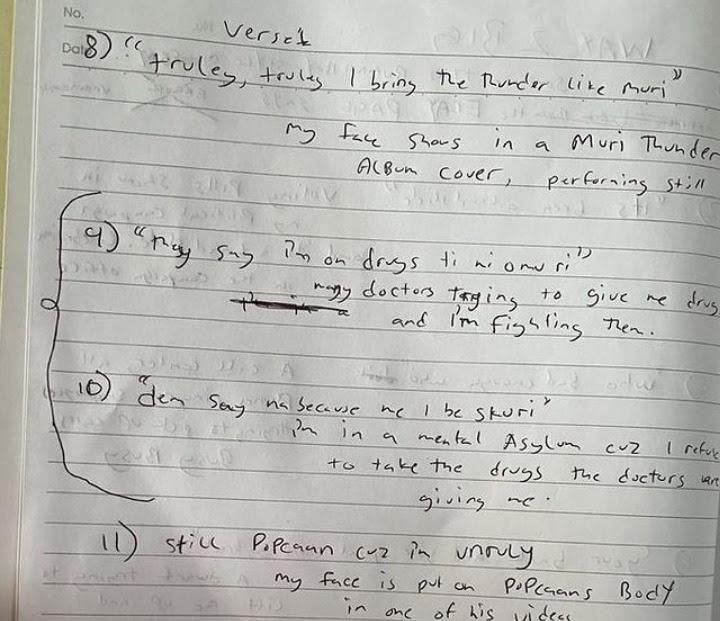 No.
Verse 1
Date
8) "truley, truley I bring the thunder like muri"
my face shows in a Muri Thunder
Album cover, performing still
9) "they say i'm on drugs ti ni omu ri"
many doctors trying to give me drug
and I'm fighting them.
10) "dem say na because me I be skuri"
i'm in a mental Asylum cuz I refuse
to take the drugs the doctors are
giving me.
11) still Popcaan cuz i'm unruly
my face is put on Popcaans Body
in one of his videos